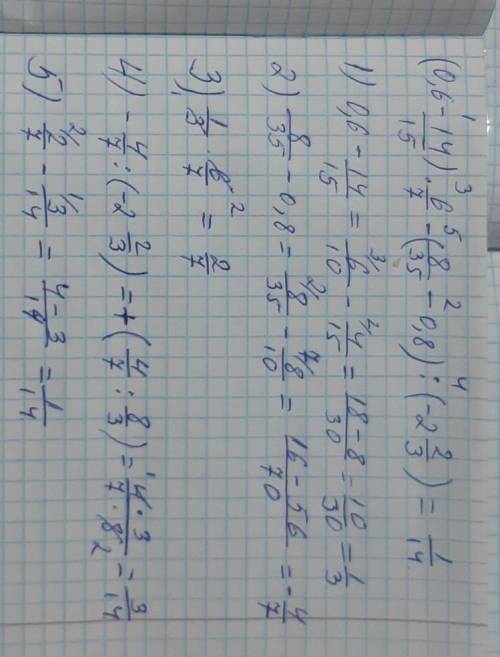 1 3 5 2 4
(0,6 - 14/15) · 6/7 - (8/35 - 0,8) : (-2 2/3) = 1/14
1) 0,6 - 14/15 = 3/ 6/10 - 2/ 4/15 = (18 - 8)/30 = 10/30 = 1/3
2) 8/35 - 0,8 = 2/ 8/35 - 7/ 8/10 = (16 - 56)/70 = -4/7
3) 1/3 · 6/7 ² = 2/7
4) -4/7 : (-2 2/3) = +(4/7 : 8/3) = ¹4 · 3/7 · 8₂ = 3/14
5) 2/ 2/7 - 1/ 3/14 = (4 - 3)/14 = 1/14